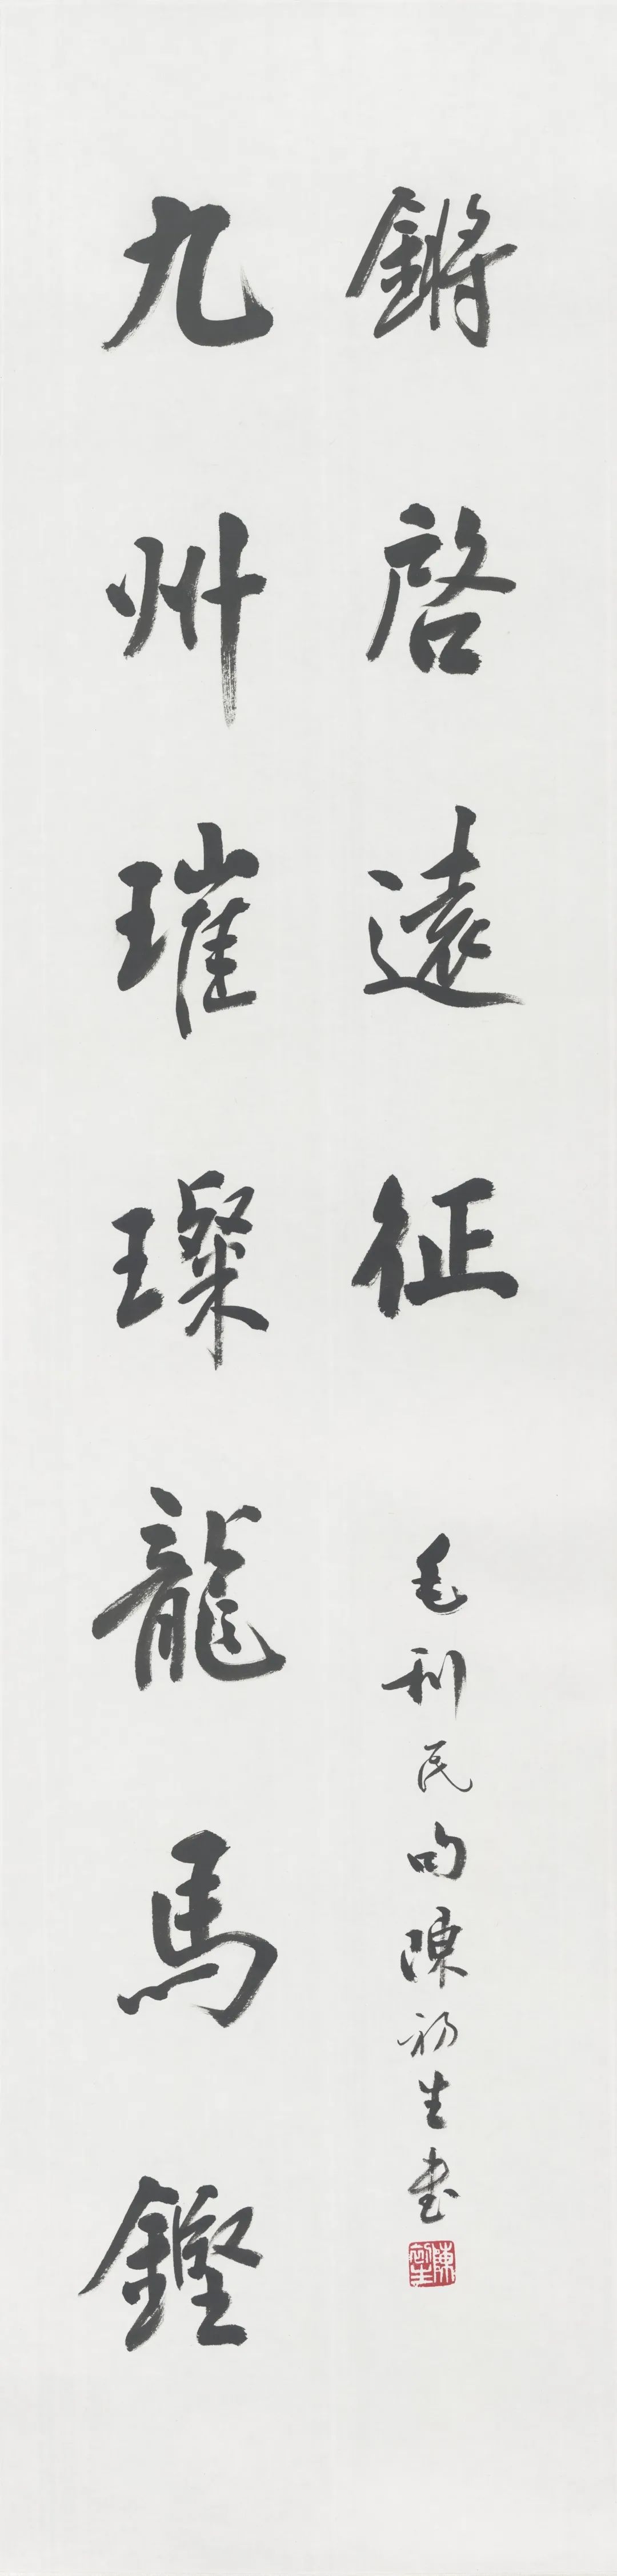 九州璀璨龍馬鏗
鏘啓遠征
毛利民句陳初生書
陳初生